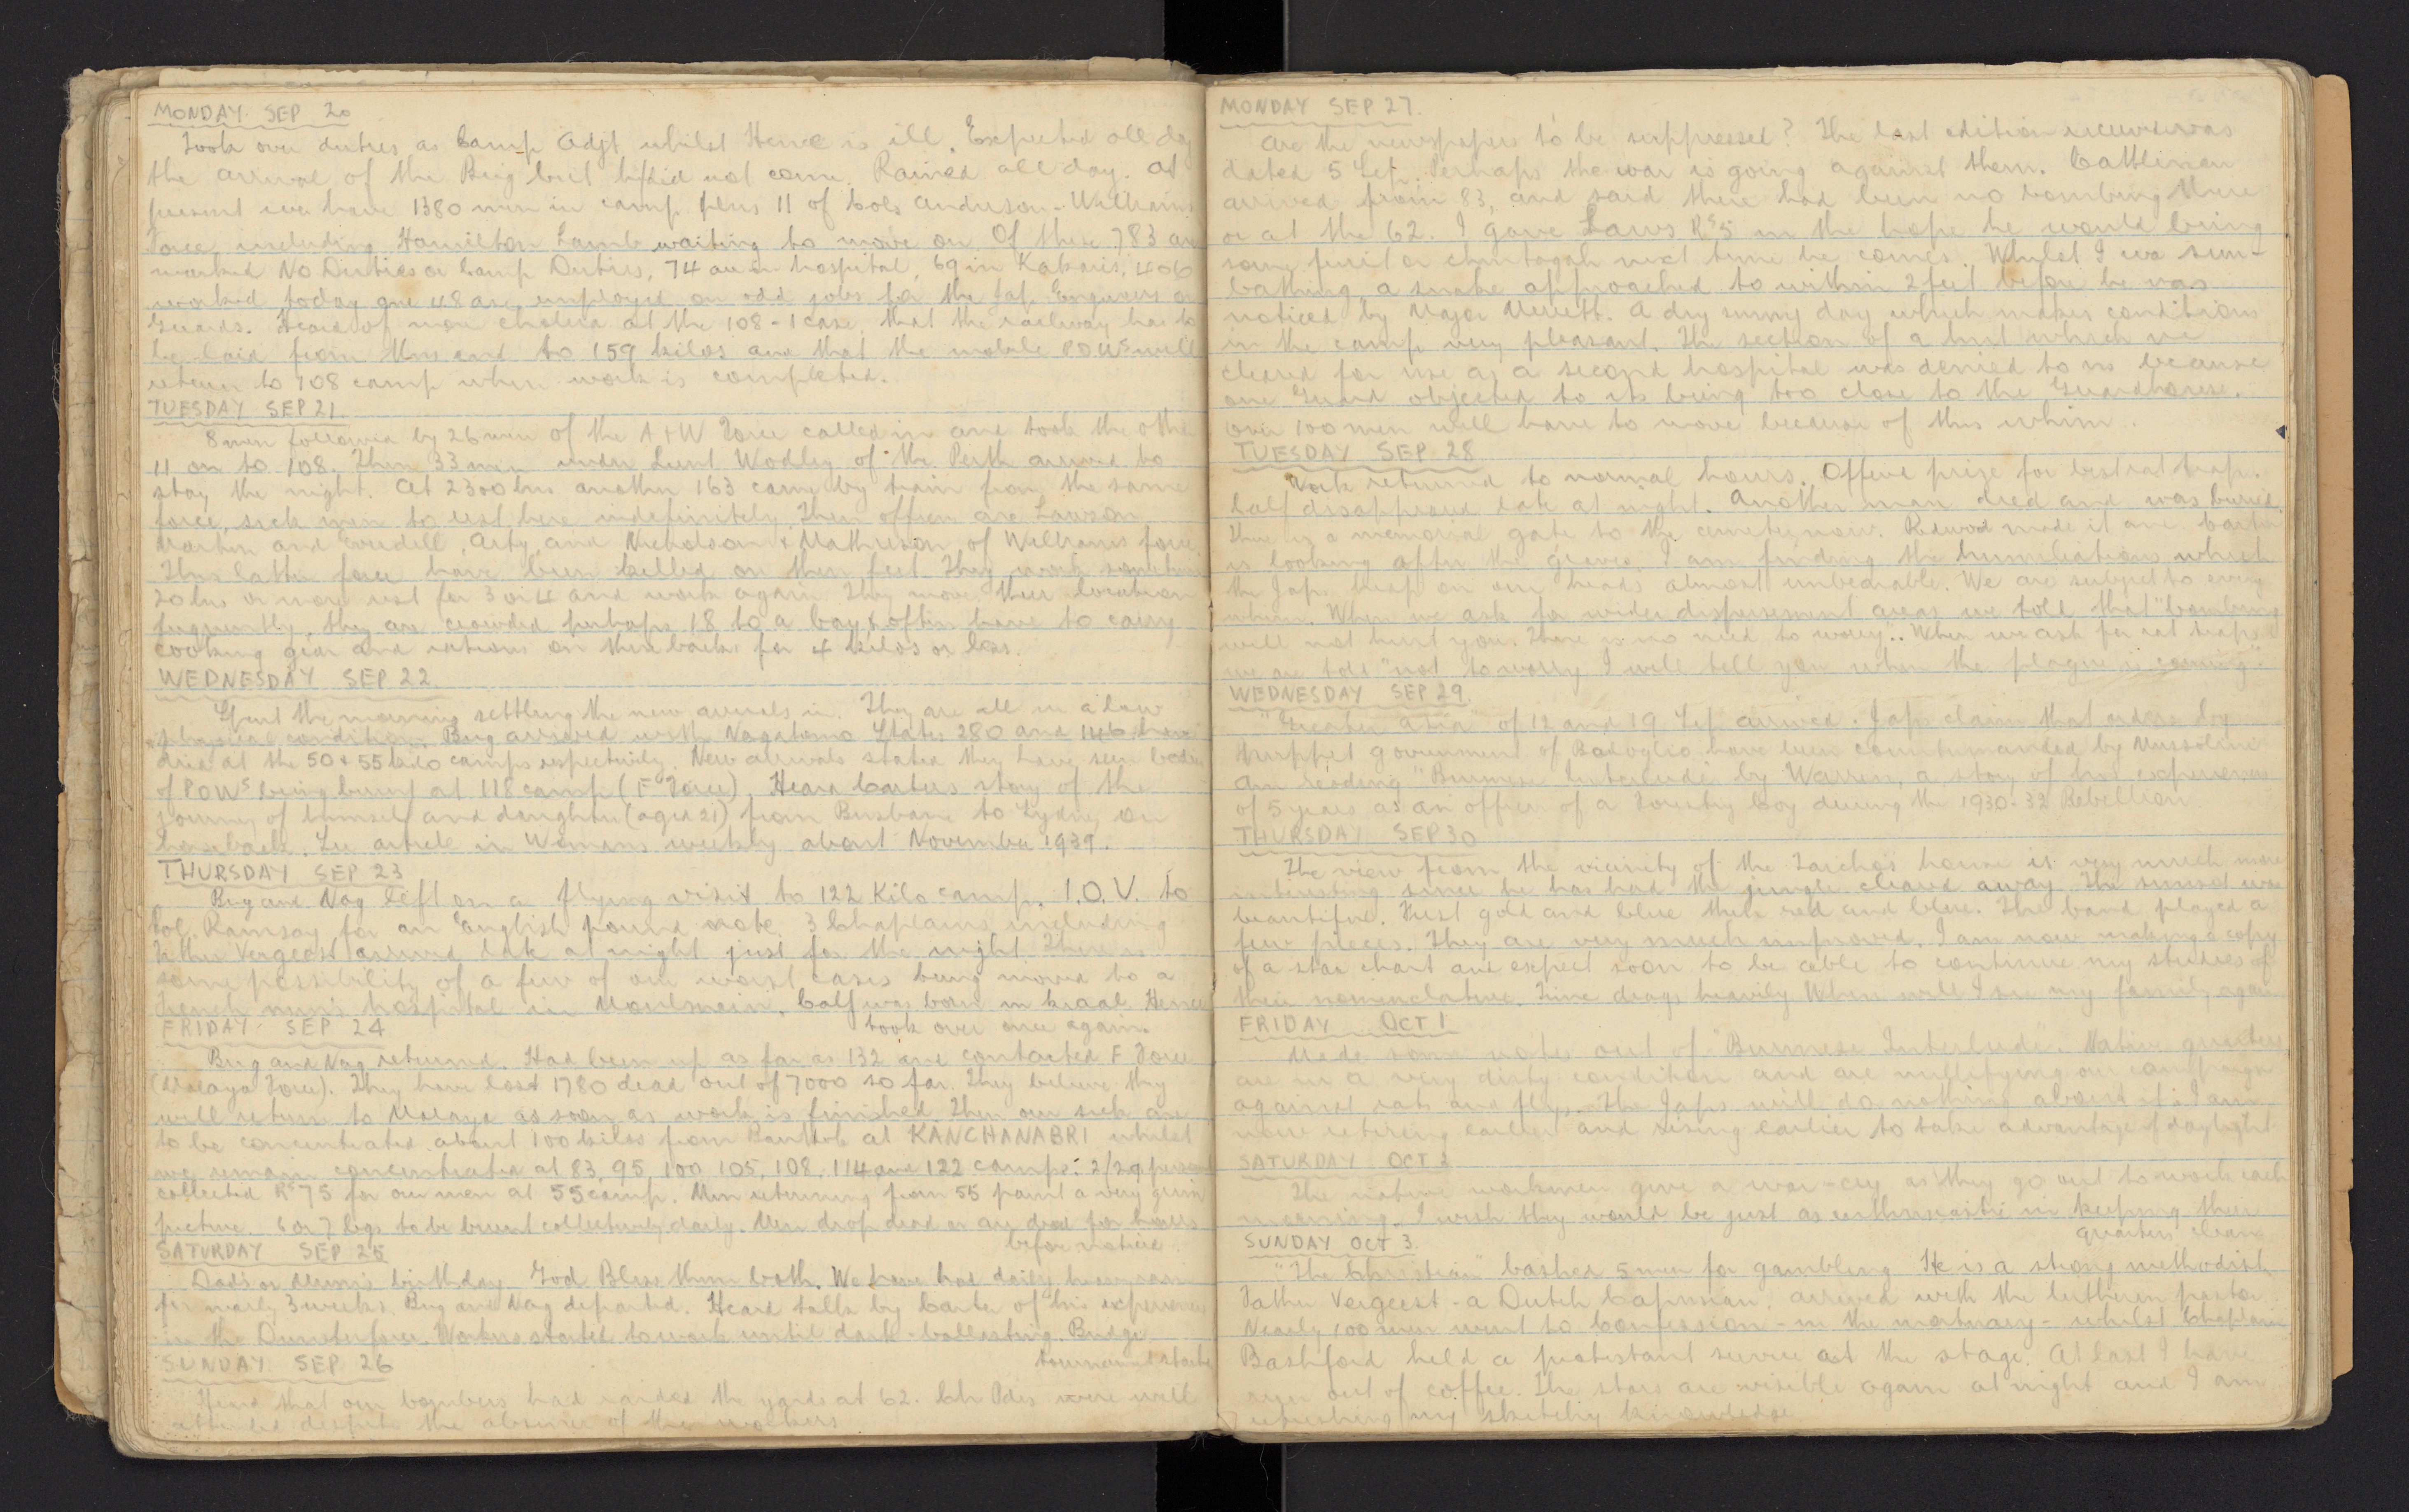 MONDAY SEP 20
Took over duties as Camp Adjt whilst Hence is ill. Expected all day
the arrival of the Brig but he did not come. Rained all day. At
present we have 1380 men in camp plus 11 of Cols Anderson - Williams
Force including Hamilton Lamb waiting to move on. Of these 783 are
marked No Duties or Camp Duties, 74 are in hospital, 69 in Kakaris, 406
worked today and 48 are employed on odd jobs for the Jap Engineers or
Guards. Heard of more cholera at the 108 - 1 case, that the railway has to
be laid from this end to 159 kilos and that the mobile POWs will
return to 108 camp when work is completed.
TUESDAY SEP 21.
8 men followed by 26 men of the A & W Force called in and took the other
11 on to 108. Then 33 men under Lieut Wodley of the Perth arrived to
stay the night. At 2300 hrs another 163 came by train from the same
force, sick men to rest here indefinitely. Their officers are Lawson
Martin and , Arty, and Nicholson & Mathieson of Williams force.
This latter force have been killed on their feet. They work sometimes
20 hrs or more rest for 3 or 4 and work again. They move their location
frequently, they are crowded perhaps 18 to a bay & often have to carry
cooking gear and rations on their backs for 4 kilos or less.
WEDNESDAY SEP 22.
Spent the morning settling the new arrivals in. They are all in a low
physical condition. Brig arrived with Nagatomo. States 280 and 146 have
died at the 50 & 55 kilo camps respectively. New arrivals stated they have seen bodies
of POWs being burnt at 118 camp (F Force). Heard Carters story of the
journey of himself and daughter (aged 21) from Brisbane to Sydney on
horseback. See article in Womans weekly about November 1939.
THURSDAY SEP 23
Brig and Nag left on a flying visit to 122 Kilo camp. I.O.V. to
Col. Ramsay for an English pound note. 3 Chaplains including
Father Vergeest arrived late at night just for the night. There is
some possibility of a few of our worst cases being moved to a
French nun's hospital in Moulmein. Calf was born in kraal. Hence
took over once again.
FRIDAY SEP 24
Brig and Nag returned. Had been up as far as 132 and contacted F Force
(Malaya Force). They have lost 1780 dead out of 7000 so far. They believe they
will return to Malaya as soon as work is finished. Then our sick are
to be concentrated about 100 kilos from at KANCHANABRI whilst
we remain concentrated at 83, 95, 100, 105, 108, 114 and 122 camps. 2/29 personnel
collected Rs 75 for our men at 55 camp. Men returning from 55 paint a very grim
picture. 6 or 7 legs to be burnt collectively daily. Men drop dead or are dead for hours
before noticed.
SATURDAY SEP 25
Dad's or Mum's birthday. God Bless them both. We have had daily heavy rain
for nearly 3 weeks. Brig and Nag departed. Heard talk by Carter of his experiences
in the Dunsterforce. Workers started to work until dark - ballasting. Bridge
tournament started
SUNDAY SEP 26
Heard that our bombers had raided the yards at 62. Ch Pdes were well
attended despite the absence of the workers
MONDAY SEP 27.
Are the newspapers to be suppressed? The last edition received was
dated 5 Sep. Perhaps the war is going against them. Cattlemen
arrived from 83, and said there had been no bombing there
or at the 62. I gave Laws Rs 5 in the hope he would bring
some fruit or next time he comes. Whilst I was sun-
bathing a snake approached to within 2 feet before he was
noticed by Major . A dry sunny day which makes conditions
in the camp very pleasant. The section of a hut which we
cleared for use as a second hospital was denied to us because
one Guard objected to its being too close to the Guardhouse.
Over 100 men will have to move because of this whim.
TUESDAY SEP 28
Work returned to normal hours. Offered prize for best rat trap.
Calf disappeared late at night. Another man died and was buried.
There is a memorial gate to the cemetery now. made it and Carter
is looking after the graves. I am finding the humiliations which
the Japs heap on our heads almost unbearable. We are subject to every
whim. When we ask for wider dispersement areas we told that "bombing
will not hurt you. There is no need to worry". When we ask for rat traps
we are told "not to worry I will tell you when the plague is coming".
WEDNESDAY SEP 29.
"Greater Asia" of 12 and 19 Sep arrived. Japs claim that orders by
puppet government of Badoglio have been countermanded by Mussolini
Am reading "Burmese Interlude" by Warren, a story of his experiences
of 5 years as an officer of a Forestry Coy during the 1930-32 Rebellion
THURSDAY SEP 30
The view from the vicinity of the house is very much more
interesting since he has had the jungle cleared away. The sunset was
beautiful. First gold and blue then red and blue. The band played a
few pieces. They are very much improved. I am now making a copy
of a star chart and expect soon to be able to continue my studies of
their nomenclature. Time drags heavily. When will I see my family again
FRIDAY OCT 1
Made some notes out of "Burmese Interlude". Native quarters
are in a very dirty condition and are nullifying our campaign
against rats and flys. The Japs will do nothing about it. I am
now retiring earlier and rising earlier to take advantage of daylight
SATURDAY OCT 2
The native workmen give a war-cry as they go out to work each
morning. I wish they would be just as enthusiastic in keeping their
quarters clean
SUNDAY OCT 3.
"The Christian" bashed 5 men for gambling. He is a strong methodist.
Father Vergeest - a Dutch Capucian, arrived with the lutheran pastor
Nearly 100 men went to Confession - in the mortuary - whilst Chaplain
Bashford held a protestant service at the stage. At last I have
run out of coffee. The stars are visible again at night and I am
refreshing my sketchy knowledge